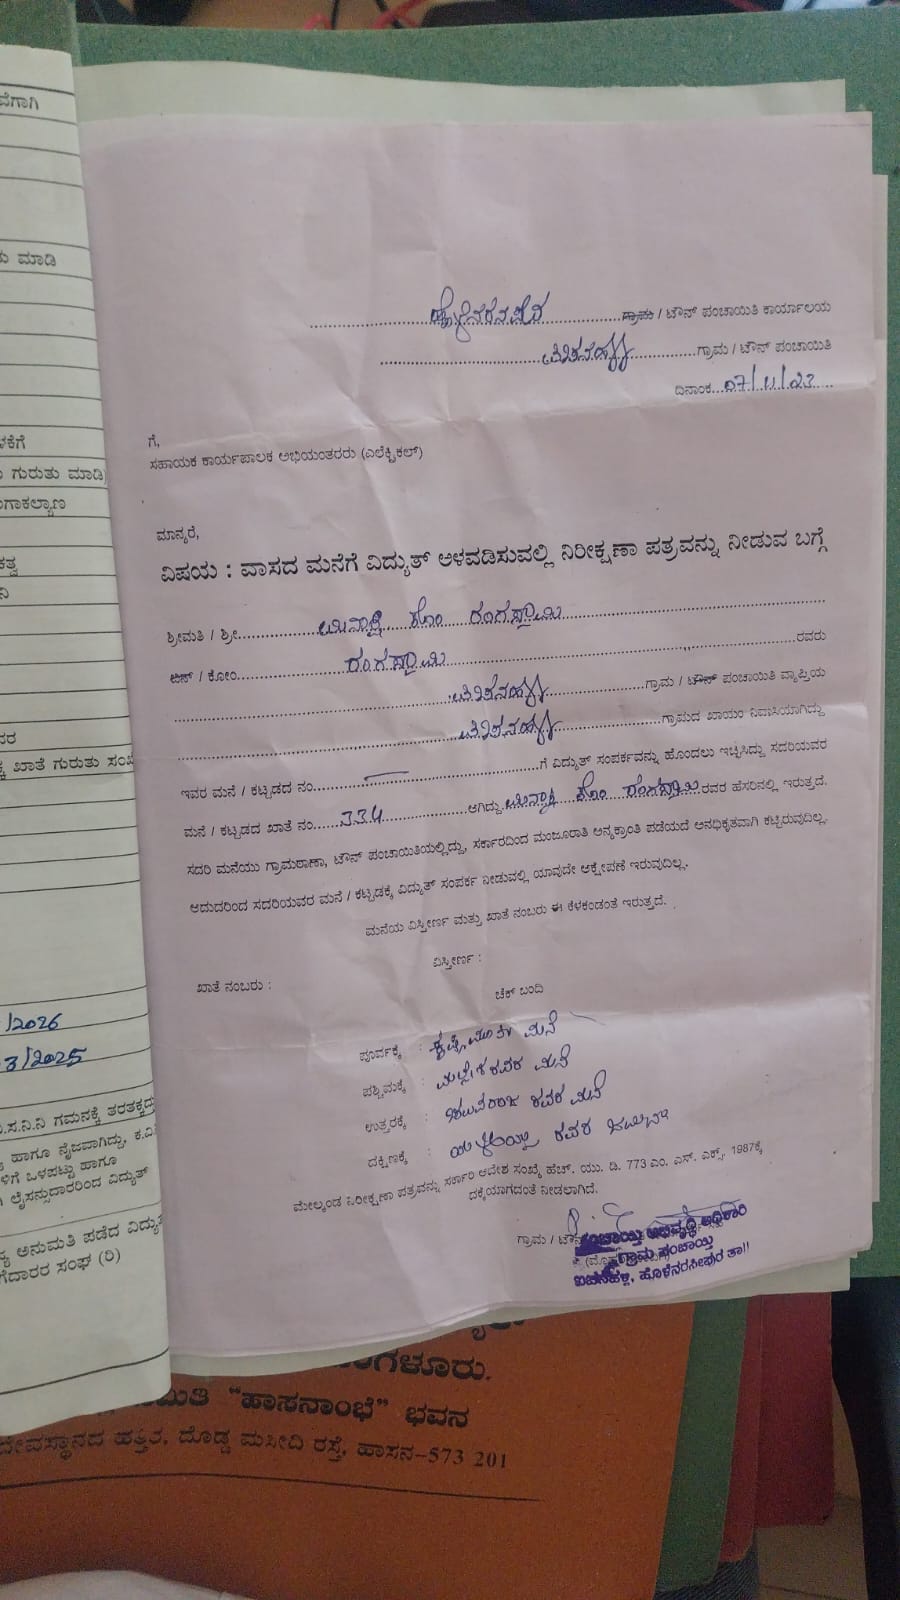 ವೆಗಾಗಿ
ು ಮಾಡಿ
ಳಕೆಗೆ
ು ಗುರುತು ಮಾಡಿ)
ಂಗಾಕಲ್ಯಾಣ
ಕತ್ವ
ನಿ
ವರ
ಕ್ಕ ಖಾತೆ ಗುರುತು ಸಂಖ
/2026
3/2025
ು.ಸ.ನಿ.ನಿ ಗಮನಕ್ಕೆ ತರತಕ್ಕದ್ದು
ು ಹಾಗೂ ನೈಜವಾಗಿದ್ದು, ಕ.ವಿ
ಳಿಗೆ ಒಳಪಟ್ಟು ಹಾಗೂ
ು ಲೈಸನ್ಸುದಾರರಿಂದ ವಿದ್ಯುತ್
್ಯ ಅನುಮತಿ ಪಡೆದ ವಿದ್ಯು
ಗೆದಾರರ ಸಂಘ (ರಿ)
ಹೊಳೆನರಸೀಪುರ ಗ್ರಾಮ / ಟೌನ್ ಪಂಚಾಯಿತಿ ಕಾರ್ಯಾಲಯ
ಗ್ರಾಮ / ಟೌನ್ ಪಂಚಾಯಿತಿ
ದಿನಾಂಕ 07/11/23
ಗೆ,
ಸಹಾಯಕ ಕಾರ್ಯಪಾಲಕ ಅಭಿಯಂತರರು (ಎಲೆಕ್ಟ್ರಿಕಲ್)
ಮಾನ್ಯರೆ,
ವಿಷಯ : ವಾಸದ ಮನೆಗೆ ವಿದ್ಯುತ್ ಅಳವಡಿಸುವಲ್ಲಿ ನಿರೀಕ್ಷಣಾ ಪತ್ರವನ್ನು ನೀಡುವ ಬಗ್ಗೆ
ಶ್ರೀಮತಿ / ಶ್ರೀ ಮೀನಾಕ್ಷಿ ಕೋಂ ರಂಗಸ್ವಾಮಿ
ಬಿನ್ / ಕೋಂ ರಂಗಸ್ವಾಮಿ ರವರು
ಗ್ರಾಮ / ಟೌನ್ ಪಂಚಾಯಿತಿ ವ್ಯಾಪ್ತಿಯ
ಗ್ರಾಮದ ಖಾಯಂ ನಿವಾಸಿಯಾಗಿದ್ದು
ಇವರ ಮನೆ / ಕಟ್ಟಡದ ನಂ ಗೆ ವಿದ್ಯುತ್ ಸಂಪರ್ಕವನ್ನು ಹೊಂದಲು ಇಚ್ಛಿಸಿದ್ದು ಸದರಿಯವರ
ಮನೆ / ಕಟ್ಟಡದ ಖಾತೆ ನಂ 334 ಆಗಿದ್ದು ಮೀನಾಕ್ಷಿ ಕೋಂ ರಂಗಸ್ವಾಮಿ ರವರ ಹೆಸರಿನಲ್ಲಿ ಇರುತ್ತದೆ.
ಸದರಿ ಮನೆಯು ಗ್ರಾಮಠಾಣಾ, ಟೌನ್ ಪಂಚಾಯಿತಿಯಲ್ಲಿದ್ದು, ಸರ್ಕಾರದಿಂದ ಮಂಜೂರಾತಿ ಅನ್ಯಕ್ರಾಂತಿ ಪಡೆಯದೆ ಅನಧಿಕೃತವಾಗಿ ಕಟ್ಟಿರುವುದಿಲ್ಲ.
ಆದುದರಿಂದ ಸದರಿಯವರ ಮನೆ / ಕಟ್ಟಡಕ್ಕೆ ವಿದ್ಯುತ್ ಸಂಪರ್ಕ ನೀಡುವಲ್ಲಿ ಯಾವುದೇ ಆಕ್ಷೇಪಣೆ ಇರುವುದಿಲ್ಲ.
ಮನೆಯ ವಿಸ್ತೀರ್ಣ ಮತ್ತು ಖಾತೆ ನಂಬರು ಈ ಕೆಳಕಂಡಂತೆ ಇರುತ್ತದೆ.
ಖಾತೆ ನಂಬರು : ವಿಸ್ತೀರ್ಣ :
ಚೆಕ್ ಬಂದಿ
ಪೂರ್ವಕ್ಕೆ : ಕೃಷ್ಣಮೂರ್ತಿ ಮನೆ
ಪಶ್ಚಿಮಕ್ಕೆ : ಮಲ್ಲೇಶರವರ ಮನೆ
ಉತ್ತರಕ್ಕೆ : ರವರ ಮನೆ
ದಕ್ಷಿಣಕ್ಕೆ : ರವರ
ಮೇಲ್ಕಂಡ ನಿರೀಕ್ಷಣಾ ಪತ್ರವನ್ನು ಸರ್ಕಾರಿ ಆದೇಶ ಸಂಖ್ಯೆ ಹೆಚ್. ಯು. ಡಿ. 773 ಎಂ. ಎನ್. ಎಕ್ಸ್. 1987ಕ್ಕೆ
ದಕ್ಕೆಯಾಗದಂತೆ ನೀಡಲಾಗಿದೆ.
ಗ್ರಾಮ / ಟೌನ್
ಪಂಚಾಯ್ತಿ ಅಭಿವೃದ್ಧಿ ಅಧಿಕಾರಿ
ಗ್ರಾಮ ಪಂಚಾಯ್ತಿ
ಹೊಳೆನರಸೀಪುರ ತಾ||
ಂಗಳೂರು.
ಮಿತಿ "ಹಾಸನಾಂಭೆ" ಭವನ
ದೇವಸ್ಥಾನದ ಹತ್ತಿರ, ದೊಡ್ಡ ಮಸೀದಿ ರಸ್ತೆ, ಹಾಸನ-573 201